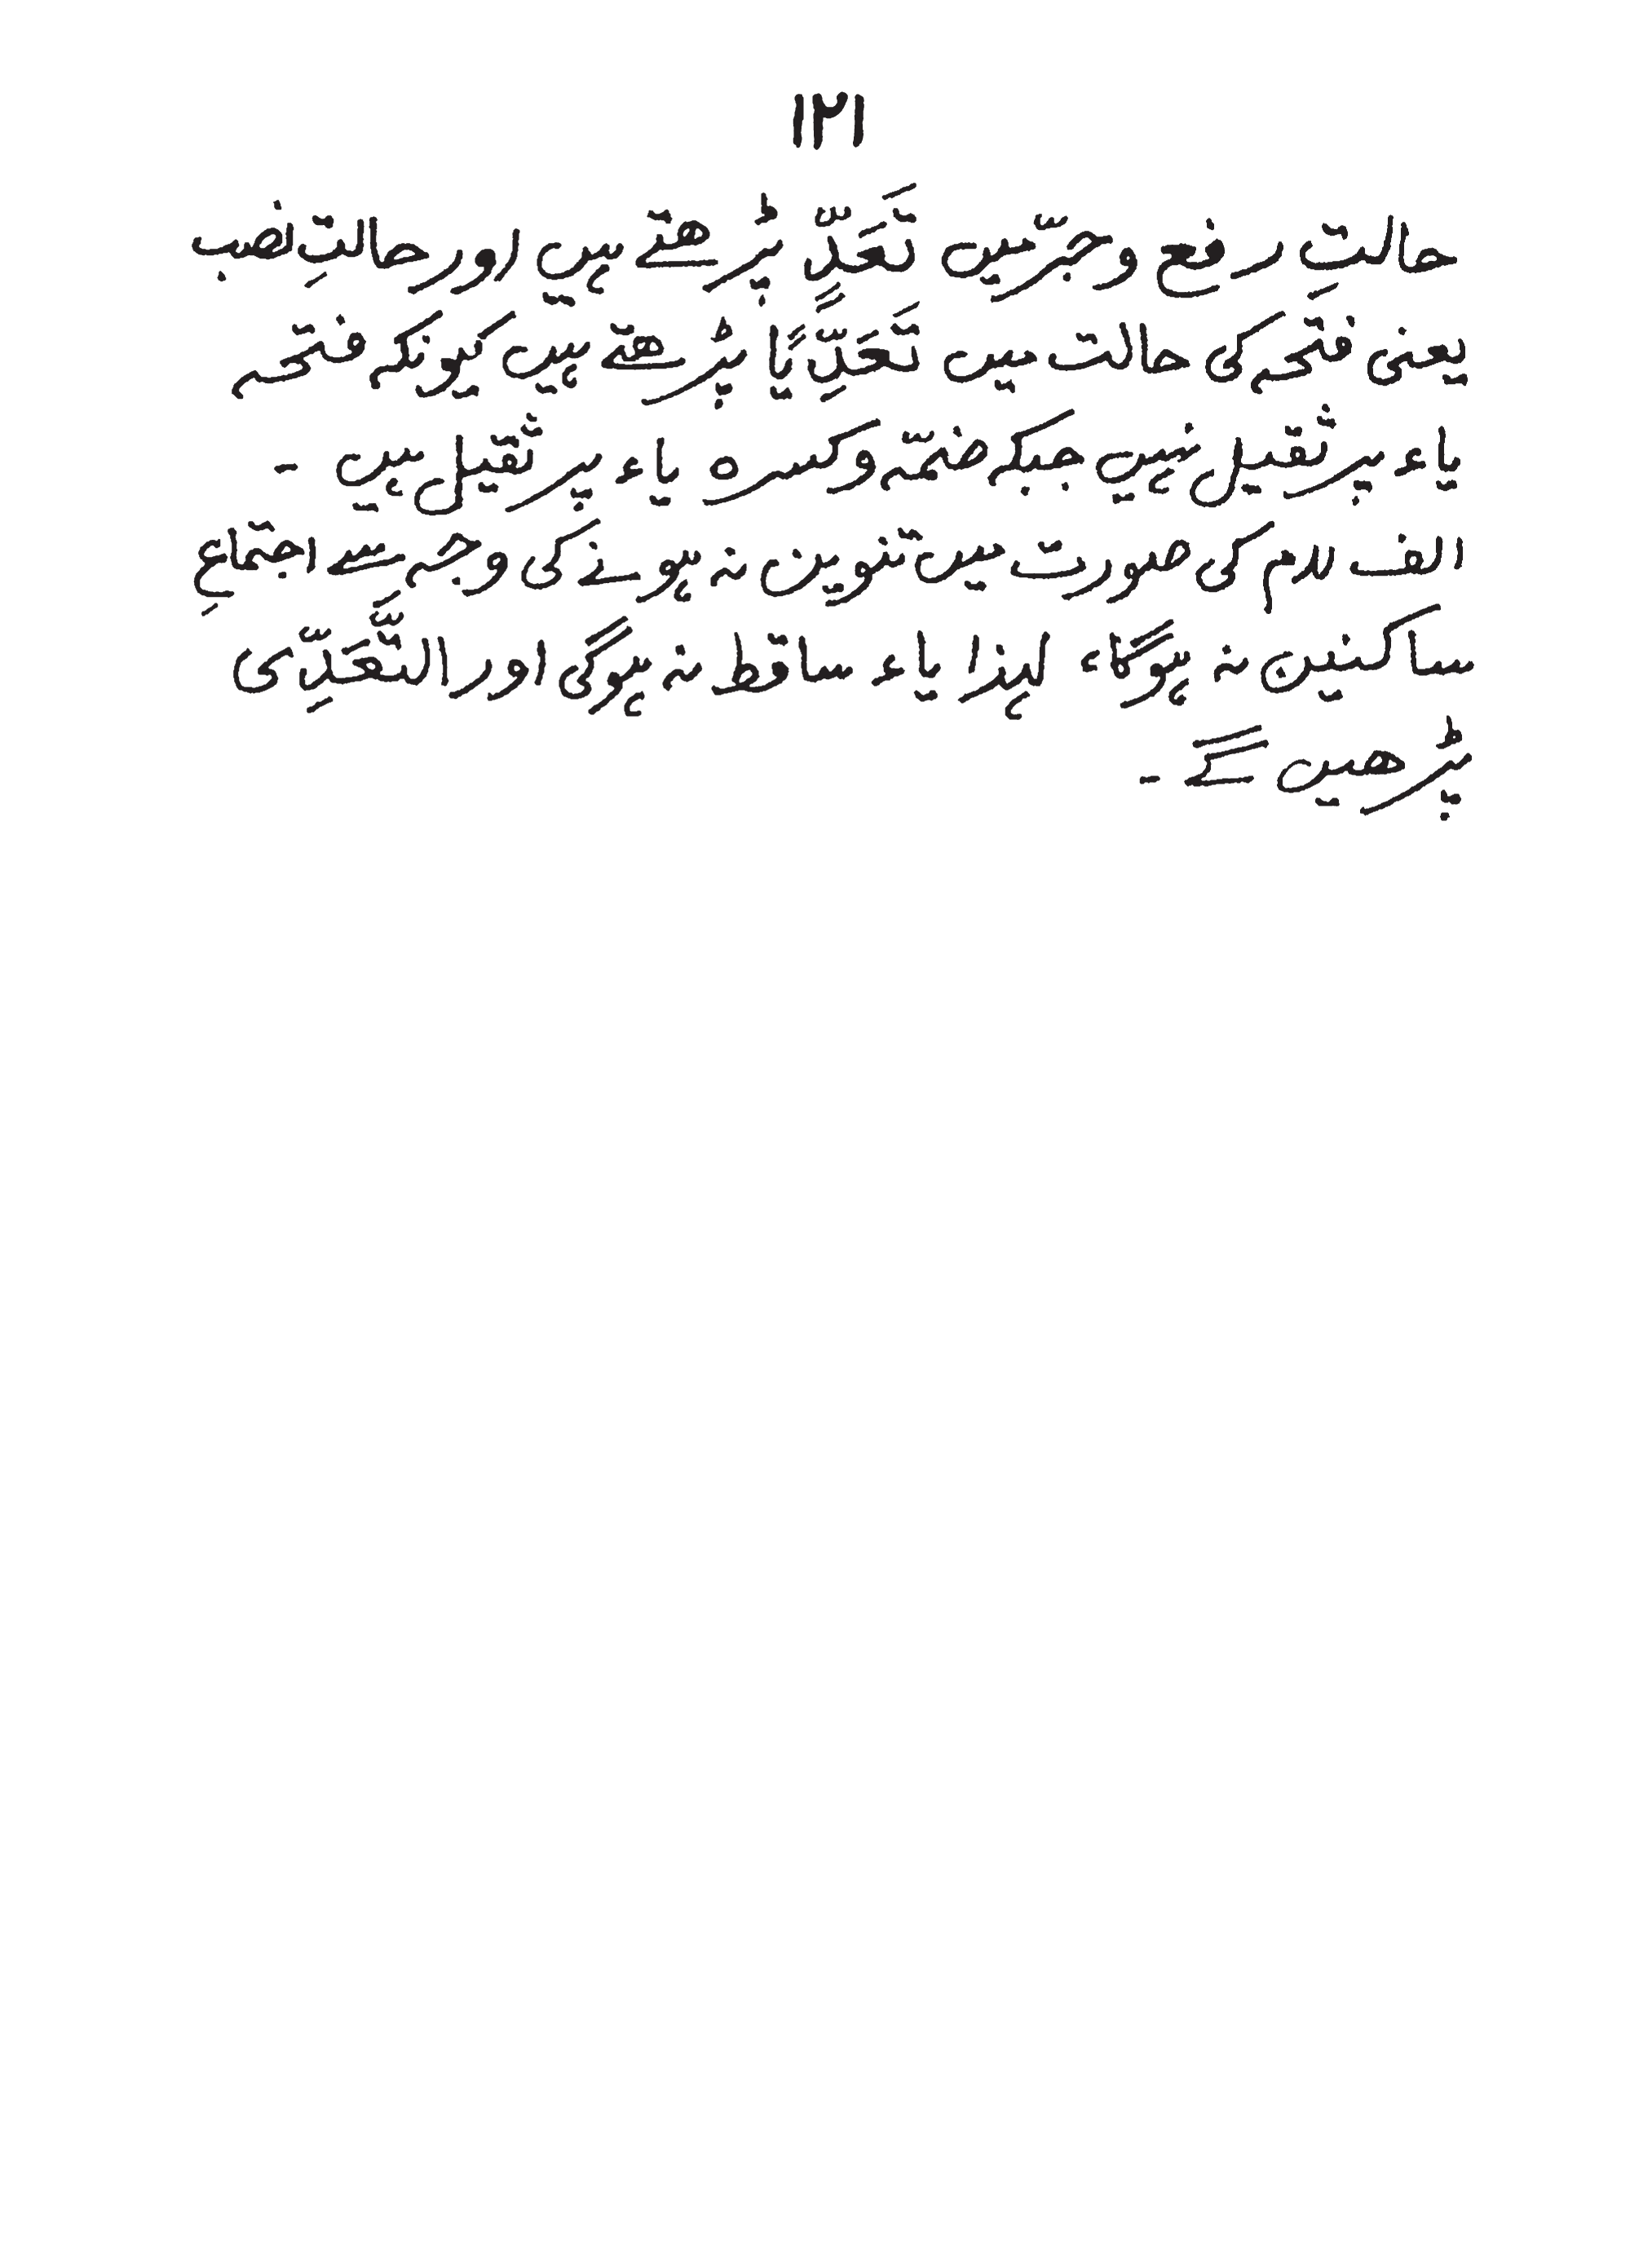 ۱۲۱
حالتِ رفع وجرّ میں تَعَدٍّ پڑھتے ہیں اور حالتِ نصب
یعنی فتحہ کی حالت میں تَعَدِّیًا پڑھتے ہیں کیونکہ فتحہ
یاء پر ثقیل نہیں جبکہ ضمّہ وکسرہ یاء پر ثقیل ہیں ۔
الف لام کی صورت میں تنوین نہ ہونے کی وجہ سے اجتماعِ
ساکنین نہ ہوگا، لہذا یاء ساقط نہ ہوگی اور التَّعَدِّی
پڑھیں گے ۔